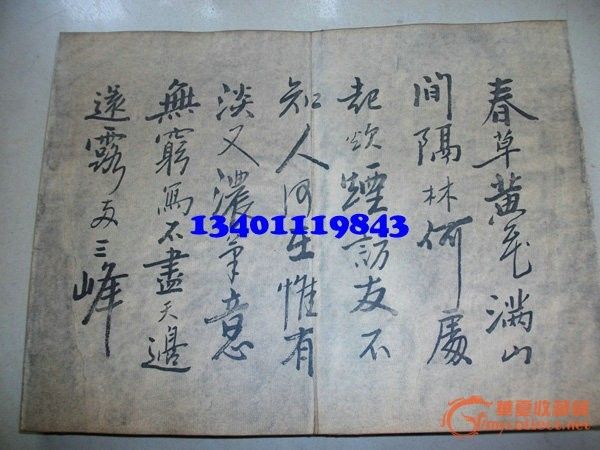 春草黃花滿山
間隔林何處
起炊煙訪友不
知人何在惟有
淡又濃筆意
無窮寫不盡天邊
遠露兩三峰
13401119843
華夏收藏網